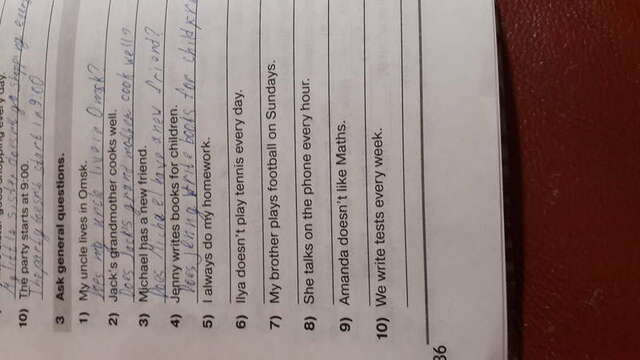 10) The party starts at 9:00.
3 Ask general questions.
1) My uncle lives in Omsk.
Does my uncle live in Omsk?
2) Jack's grandmother cooks well.
Does Jack's grand mother cook well?
3) Michael has a new friend.
Does Michael have a new friend?
4) Jenny writes books for children.
Does Jenny write books for
5) I always do my homework.
6) Ilya doesn't play tennis every day.
7) My brother plays football on Sundays.
8) She talks on the phone every hour.
9) Amanda doesn't like Maths.
10) We write tests every week.
86